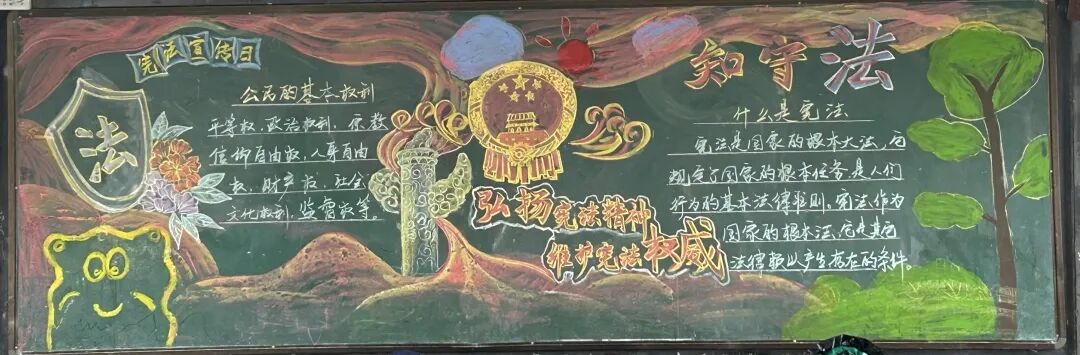 宪法宣传日
法
公民的基本权利
平等权，政治权利，宗教
信仰自由权，人身自由
权，财产权，社会
文化权利，监督权等。
弘扬宪法精神
维护宪法权威
知守法
什么是宪法
宪法是国家的根本大法，它
规定了国家的根本任务，是人们
行为的基本法律准则。宪法作为
国家的根本法，它是其它
法律赖以产生存在的条件。